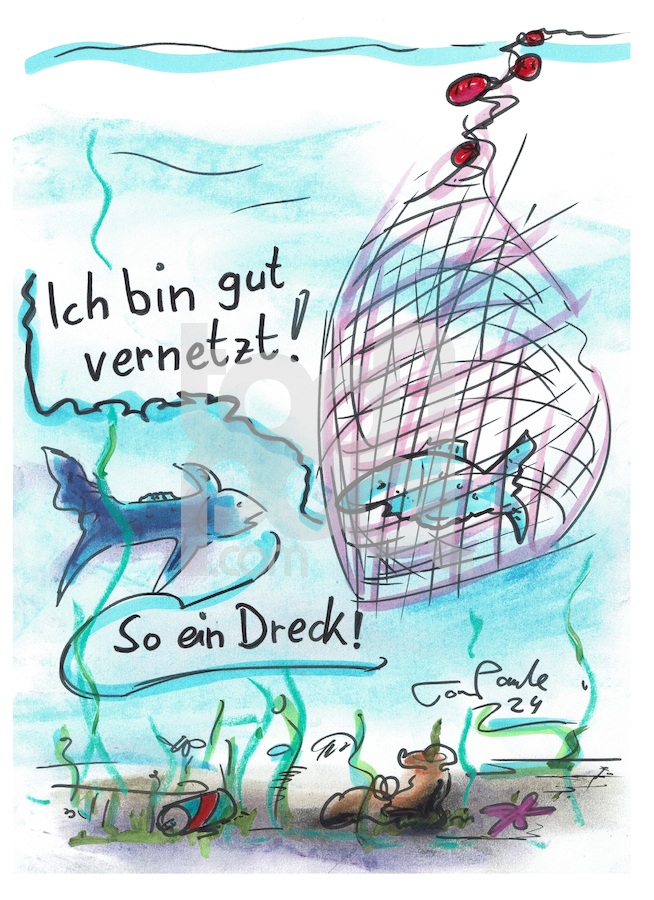 Ich bin gut
vernetzt!
So ein Dreck!
24
.com